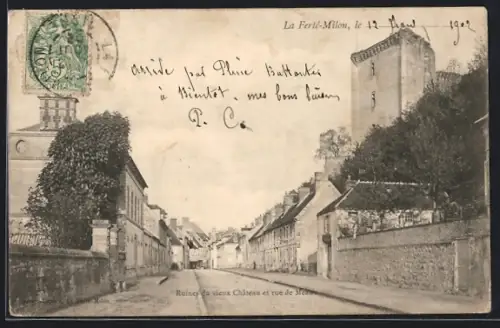 La Ferté-Milon, le 12 Mars 1902
Arrivé par Pluie Battante
à Bientôt, mes bons
P. C.
Ruines du vieux Château et rue de